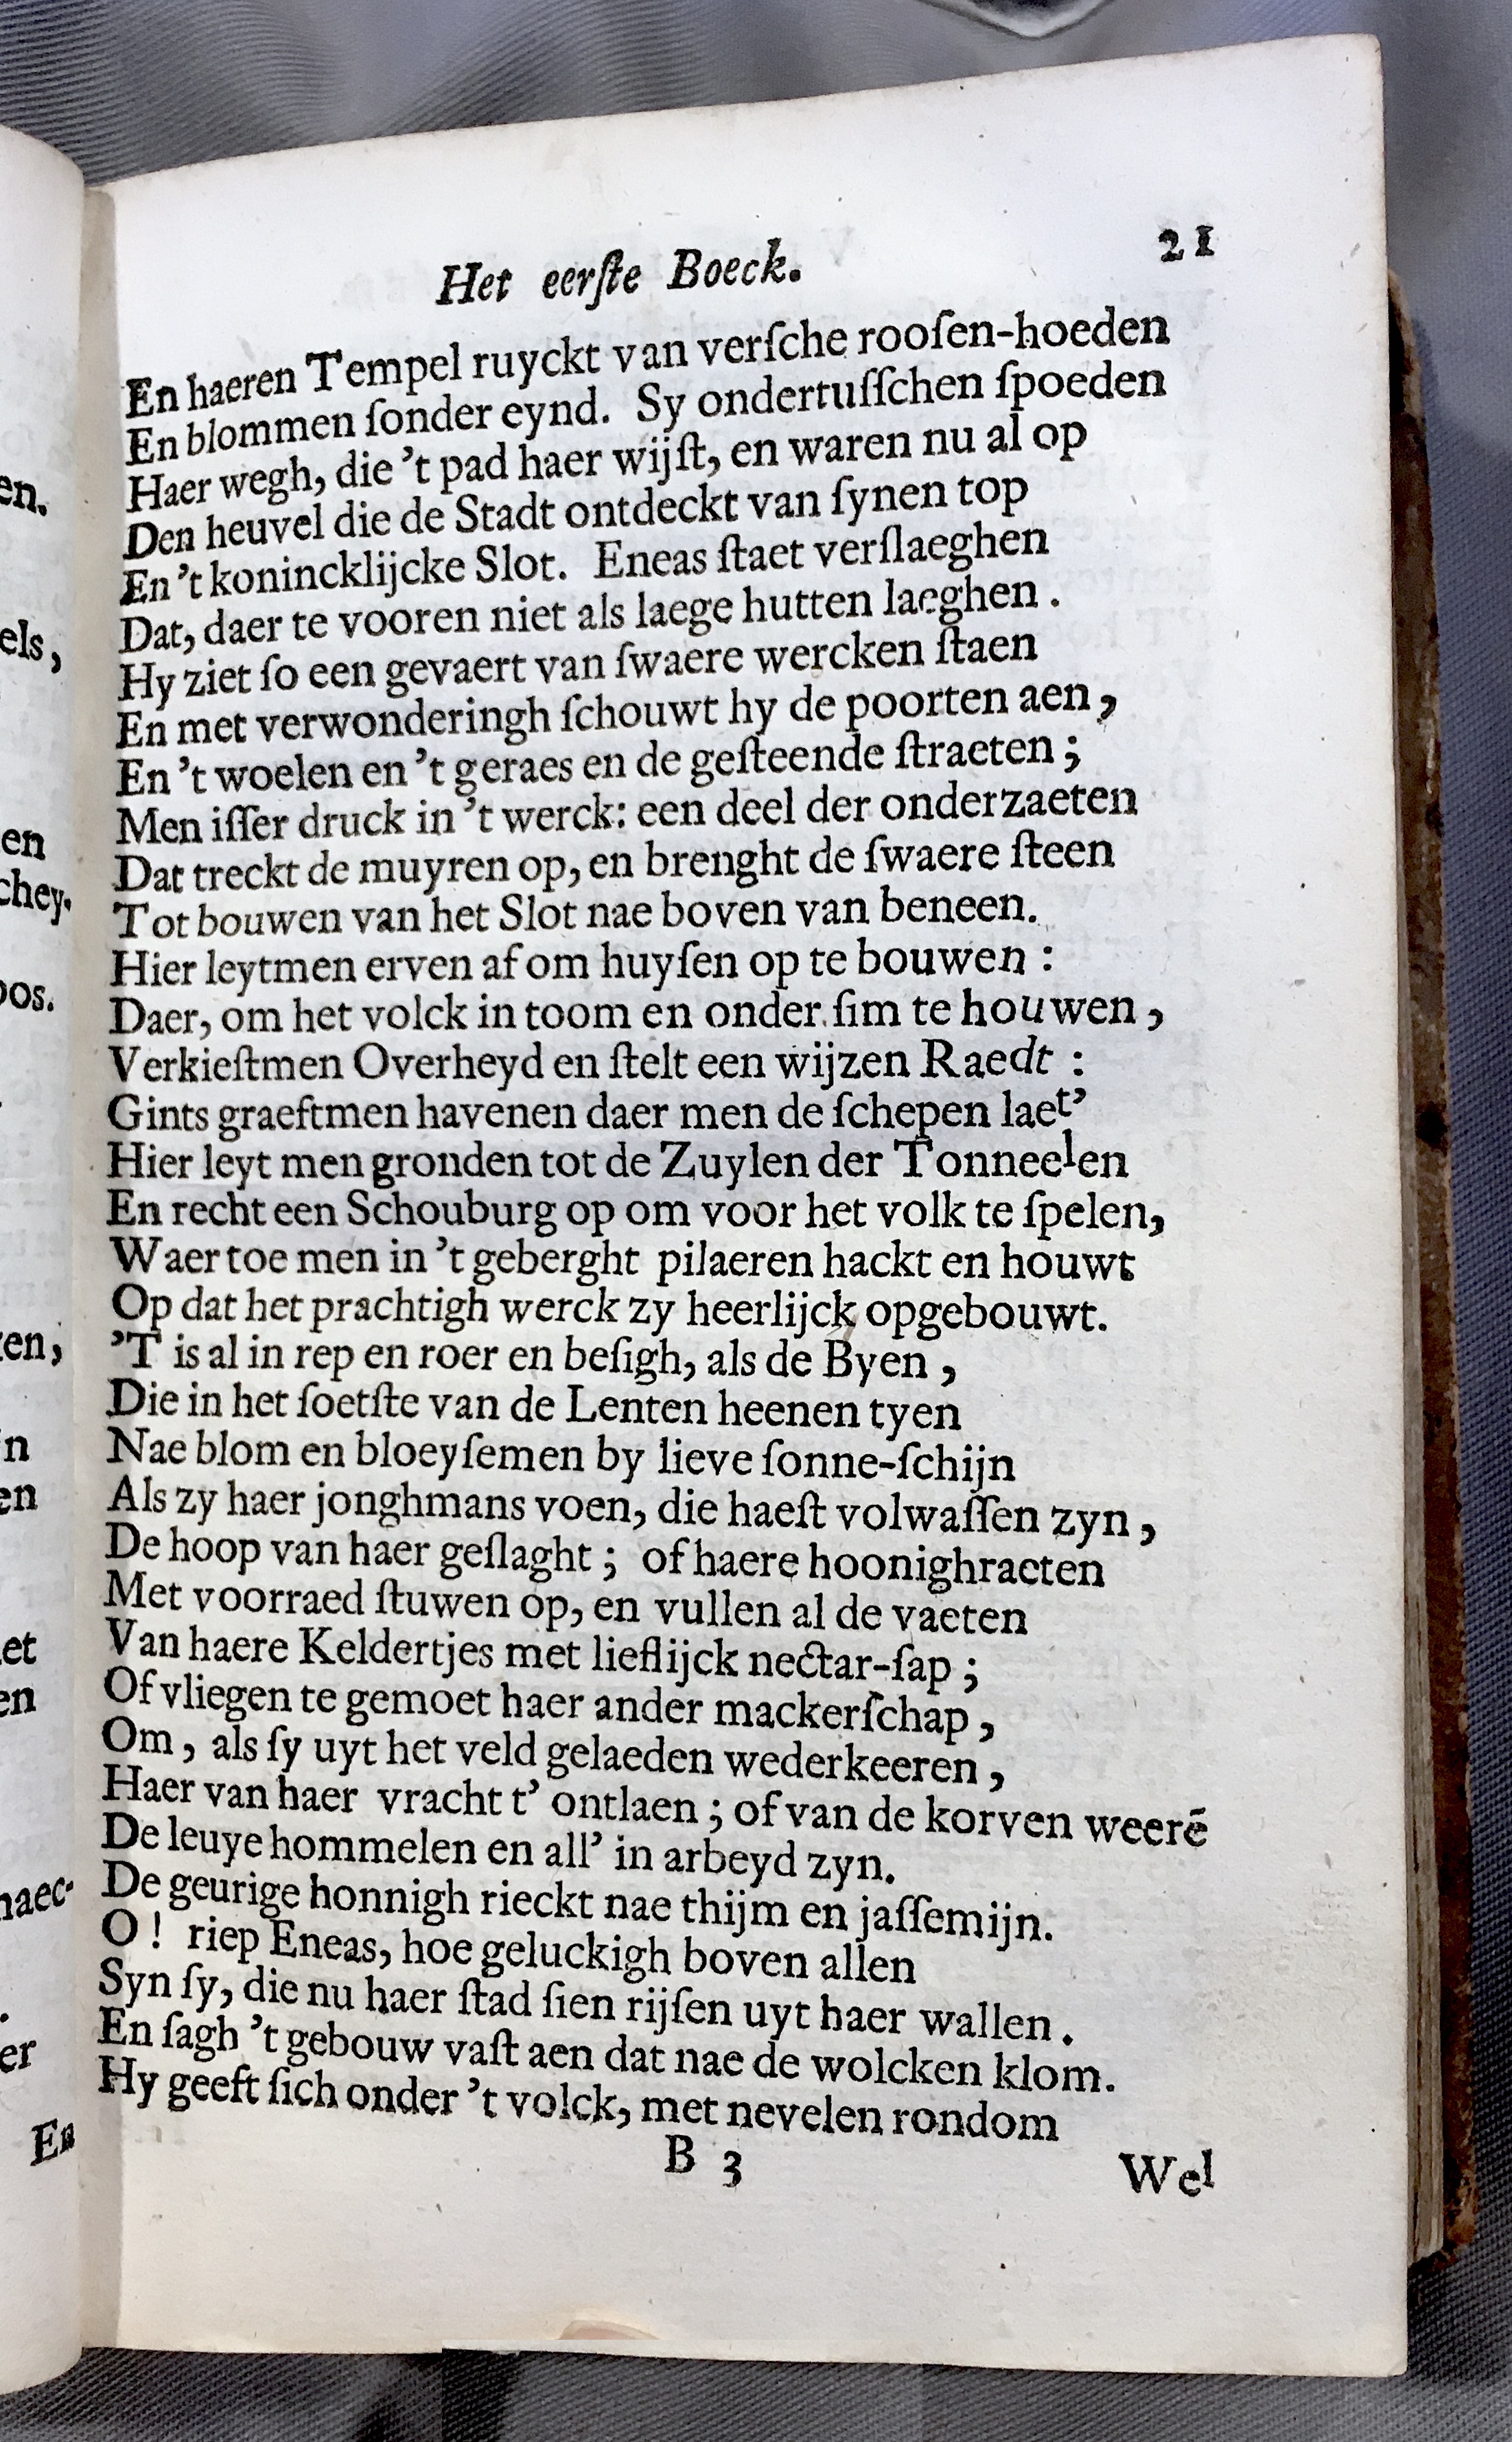 Het eerſte Boeck.
21
En haeren Tempel ruyckt van verſche rooſen-hoeden
En blommen ſonder eynd. Sy ondertuſſchen ſpoeden
Haer wegh, die 't pad haer wijſt, en waren nu al op
Den heuvel die de Stadt ontdeckt van ſynen top
En 't konincklijcke Slot. Eneas ſtaet verſlaeghen
Dat, daer te vooren niet als laege hutten laeghen.
Hy ziet ſo een gevaert van ſwaere wercken ſtaen
En met verwonderingh ſchouwt hy de poorten aen,
En 't woelen en 't geraes en de geſteende ſtraeten;
Men iſſer druck in 't werck: een deel der onderzaeten
Dat treckt de muyren op, en brenght de ſwaere ſteen
Tot bouwen van het Slot nae boven van beneen.
Hier leytmen erven af om huyſen op te bouwen:
Daer, om het volck in toom en onder ſim te houwen,
Verkieſtmen Overheyd en ſtelt een wijzen Raedt:
Gints graeftmen havenen daer men de ſchepen laet'
Hier leyt men gronden tot de Zuylen der Tonneelen
En recht een Schouburg op om voor het volk te ſpelen,
Waer toe men in 't geberght pilaeren hackt en houwt
Op dat het prachtigh werck zy heerlijck opgebouwt.
'T is al in rep en roer en beſigh, als de Byen,
Die in het ſoetſte van de Lenten heenen tyen
Nae blom en bloeyſemen by lieve ſonne-ſchijn
Als zy haer jonghmans voen, die haeſt volwaſſen zyn,
De hoop van haer geſlaght; of haere hoonighraeten
Met voorraed ſtuwen op, en vullen al de vaeten
Van haere Keldertjes met lieflijck nectar-ſap;
Of vliegen te gemoet haer ander mackerſchap,
Om, als ſy uyt het veld gelaeden wederkeeren,
Haer van haer vracht t' ontlaen; of van de korven weerē
De leuye hommelen en all' in arbeyd zyn.
De geurige honnigh rieckt nae thijm en jaſſemijn.
O! riep Eneas, hoe geluckigh boven allen
Syn ſy, die nu haer ſtad ſien rijſen uyt haer wallen.
En ſagh 't gebouw vaſt aen dat nae de wolcken klom.
Hy geeft ſich onder 't volck, met nevelen rondom
B 3
Wel